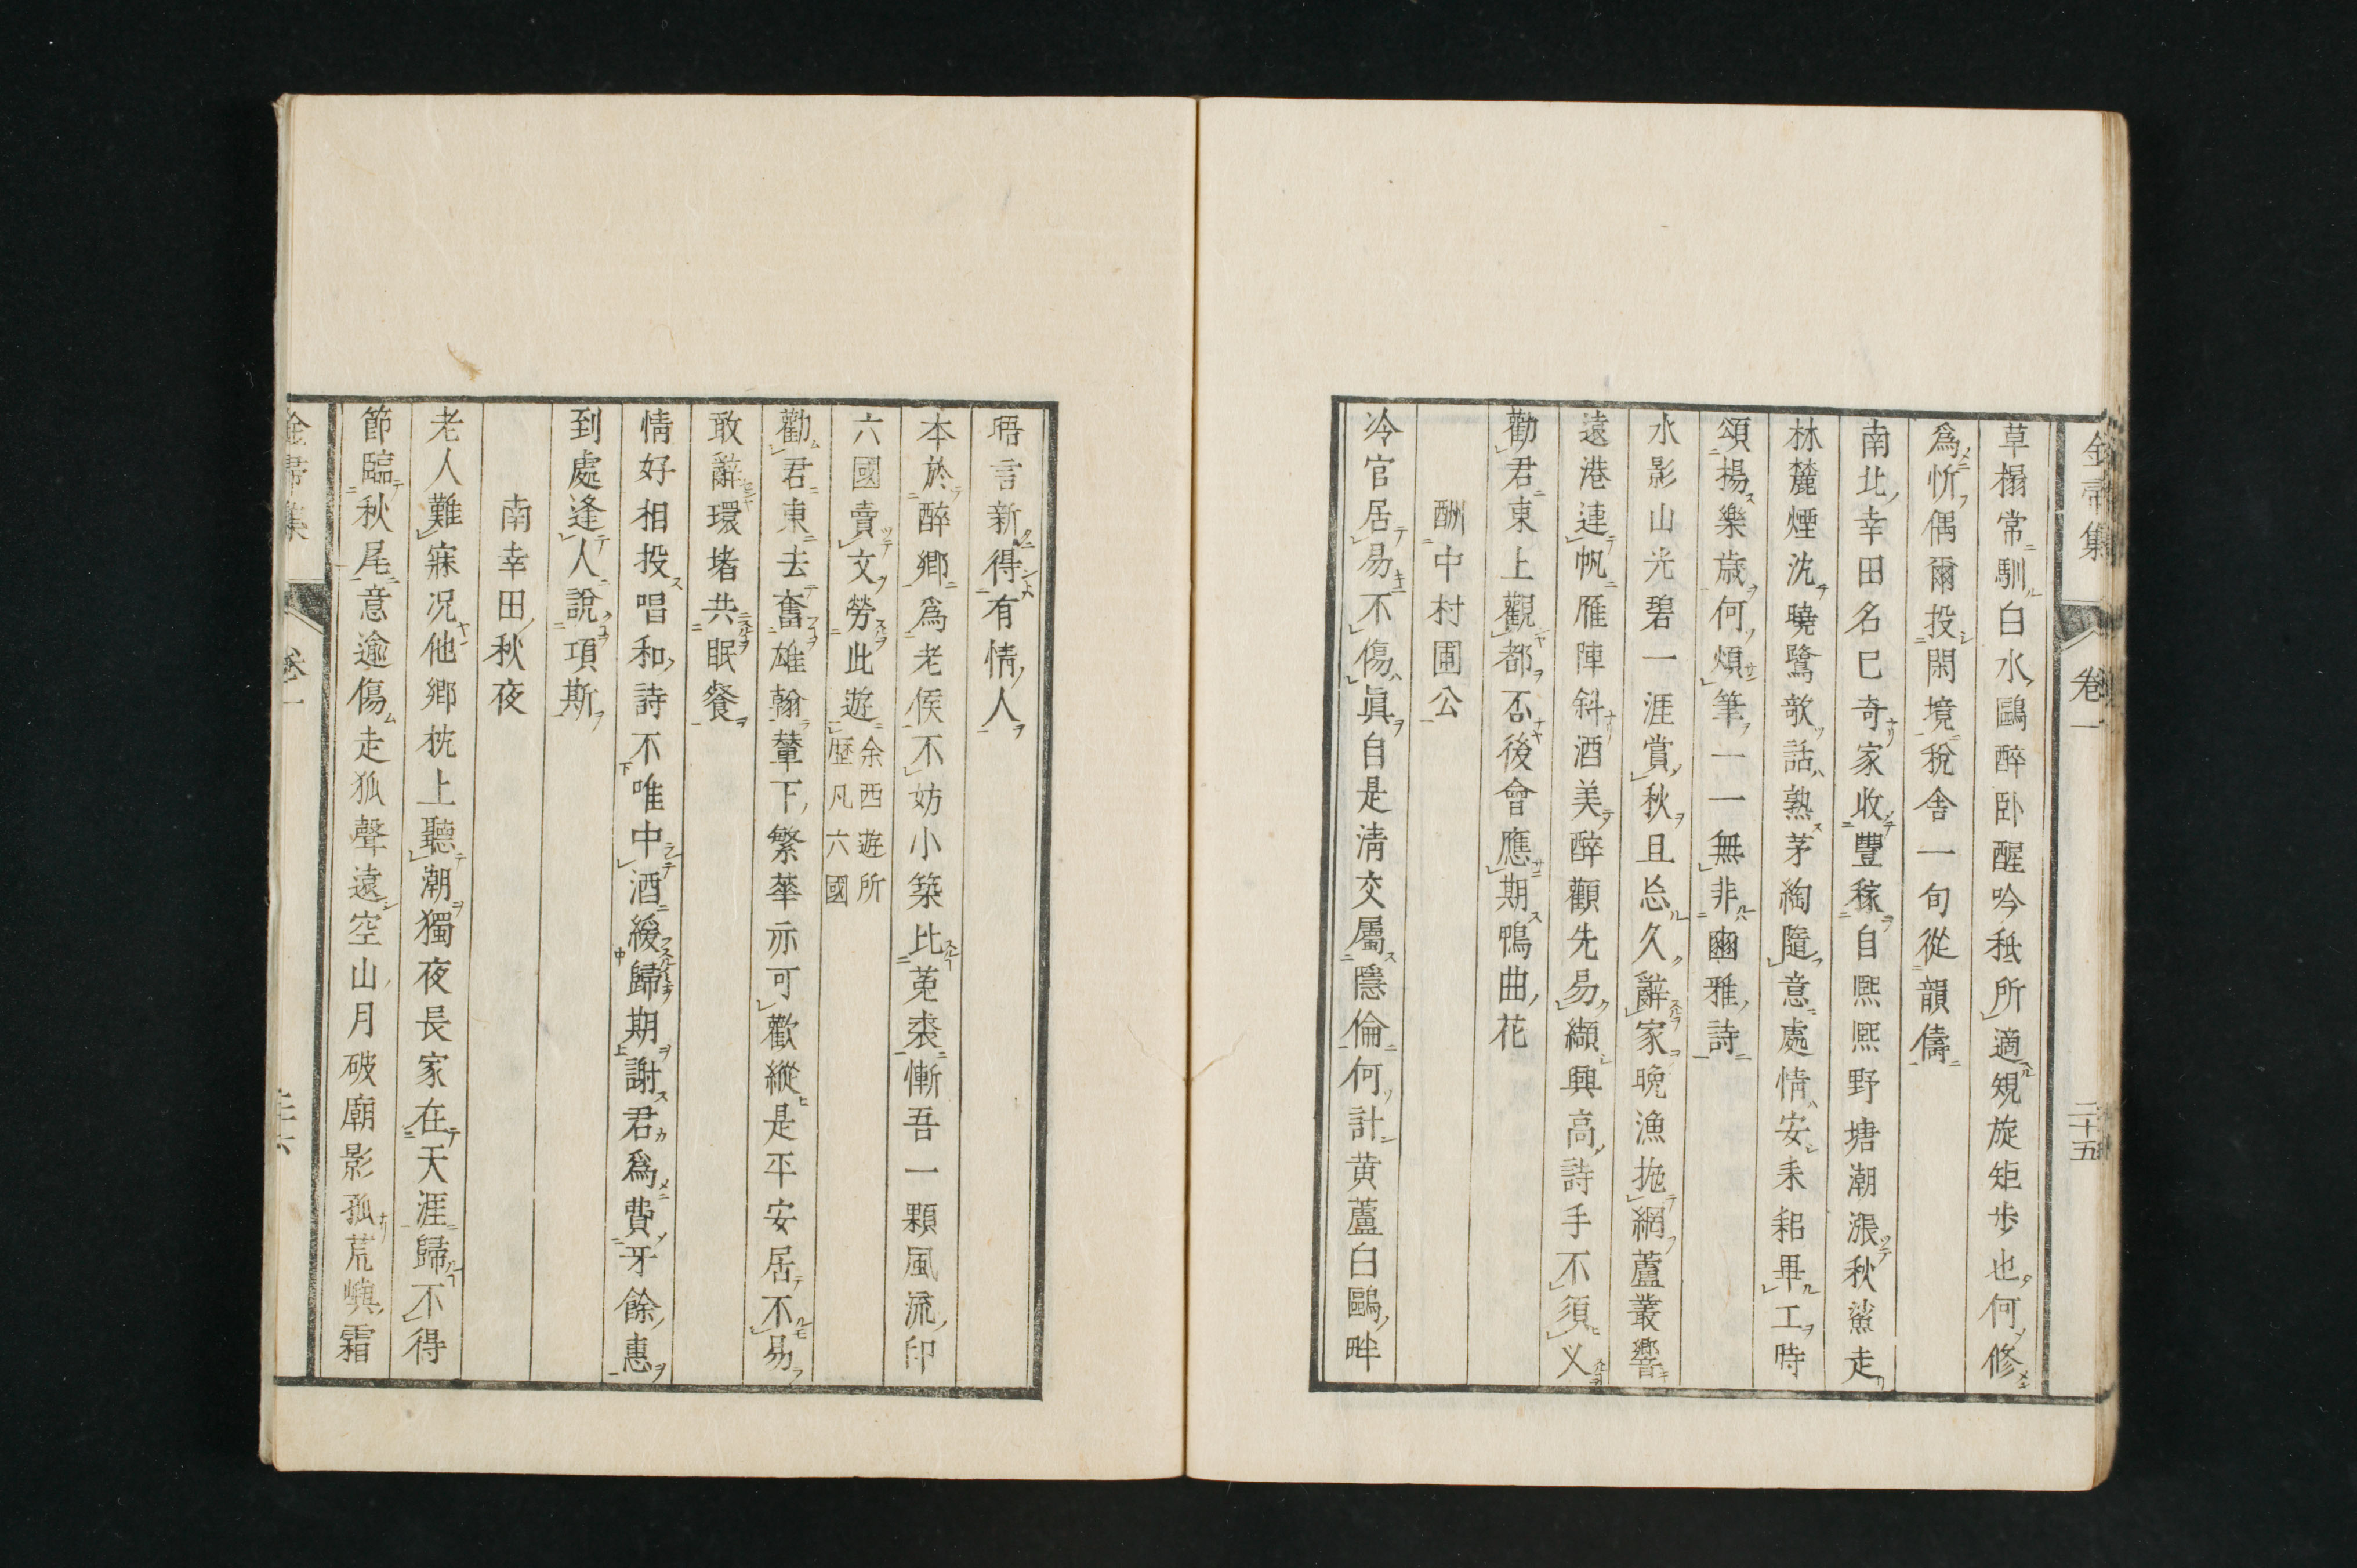 金帚集 卷一 二十五
草榻常馴白水鷗醉臥醒吟秖所適規旋矩步也何修
爲忻偶爾投閑境稅舍一旬從韻儔
南北幸田名已奇家收豐稼自熙熙野塘潮漲秋鯊走
林麓煙沈曉鷺欹話熟茅綯隨意處情安耒耜畢工時
頌揚樂歲何煩筆一一無非豳雅詩
水影山光碧一涯賞秋且忘久辭家晚漁拖網蘆叢響
遠港連帆雁陣斜酒美醉顴先易纈興高詩手不須叉
勸君東上觀都否後會應期鴨曲花
酬中村圃公
冷官居易不傷眞自是淸交屬隱倫何計黃蘆白鷗畔
晤言新得有情人
本於醉鄉爲老侯不妨小築比菟裘慚吾一顆風流印
六國賣文勞此遊余西遊所歷凡六國
勸君東去奮雄翰輦下繁華亦可歡縱是平安居不易
敢辭環堵共眠餐
情好相投唱和詩不唯中酒緩歸期謝君爲費牙餘惠
到處逢人說項斯
南幸田秋夜
老人難寐况他鄉枕上聽潮獨夜長家在天涯歸不得
節臨秋尾意逾傷走狐聲遠空山月破廟影孤荒嶼霜
金帚集 卷一